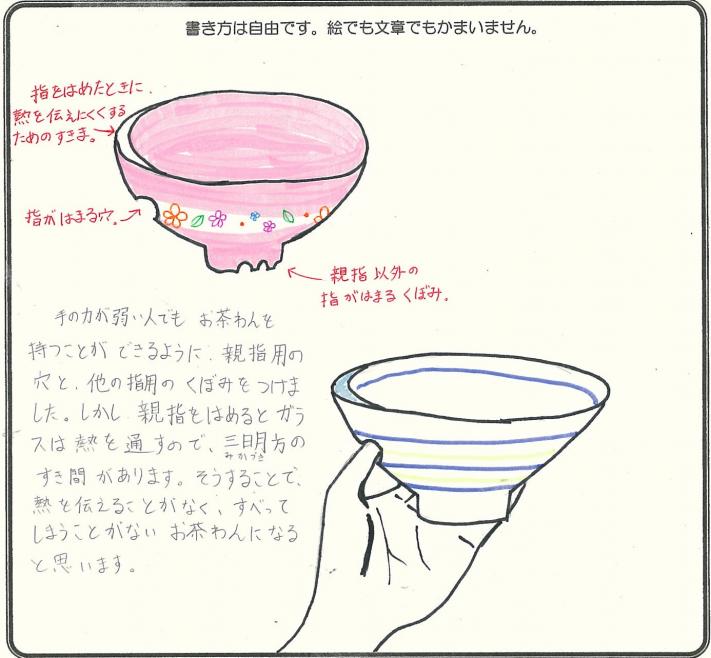 書き方は自由です。絵でも文章でもかまいません。
指をはめたときに、
熱を伝えにくくする
ためのすきま。
指がはまる穴。
親指以外の
指がはまるくぼみ。
手の力が弱い人でも お茶わんを
持つことが できるように、親指用の
穴と、他の指用の くぼみをつけま
した。しかし 親指をはめると ガラ
スは 熱を 通すので、三日月方の
みかづき
すき間 があります。そうすることで、
熱を伝えることがなく、すべって
しまうことがない お茶わんになる
と思います。